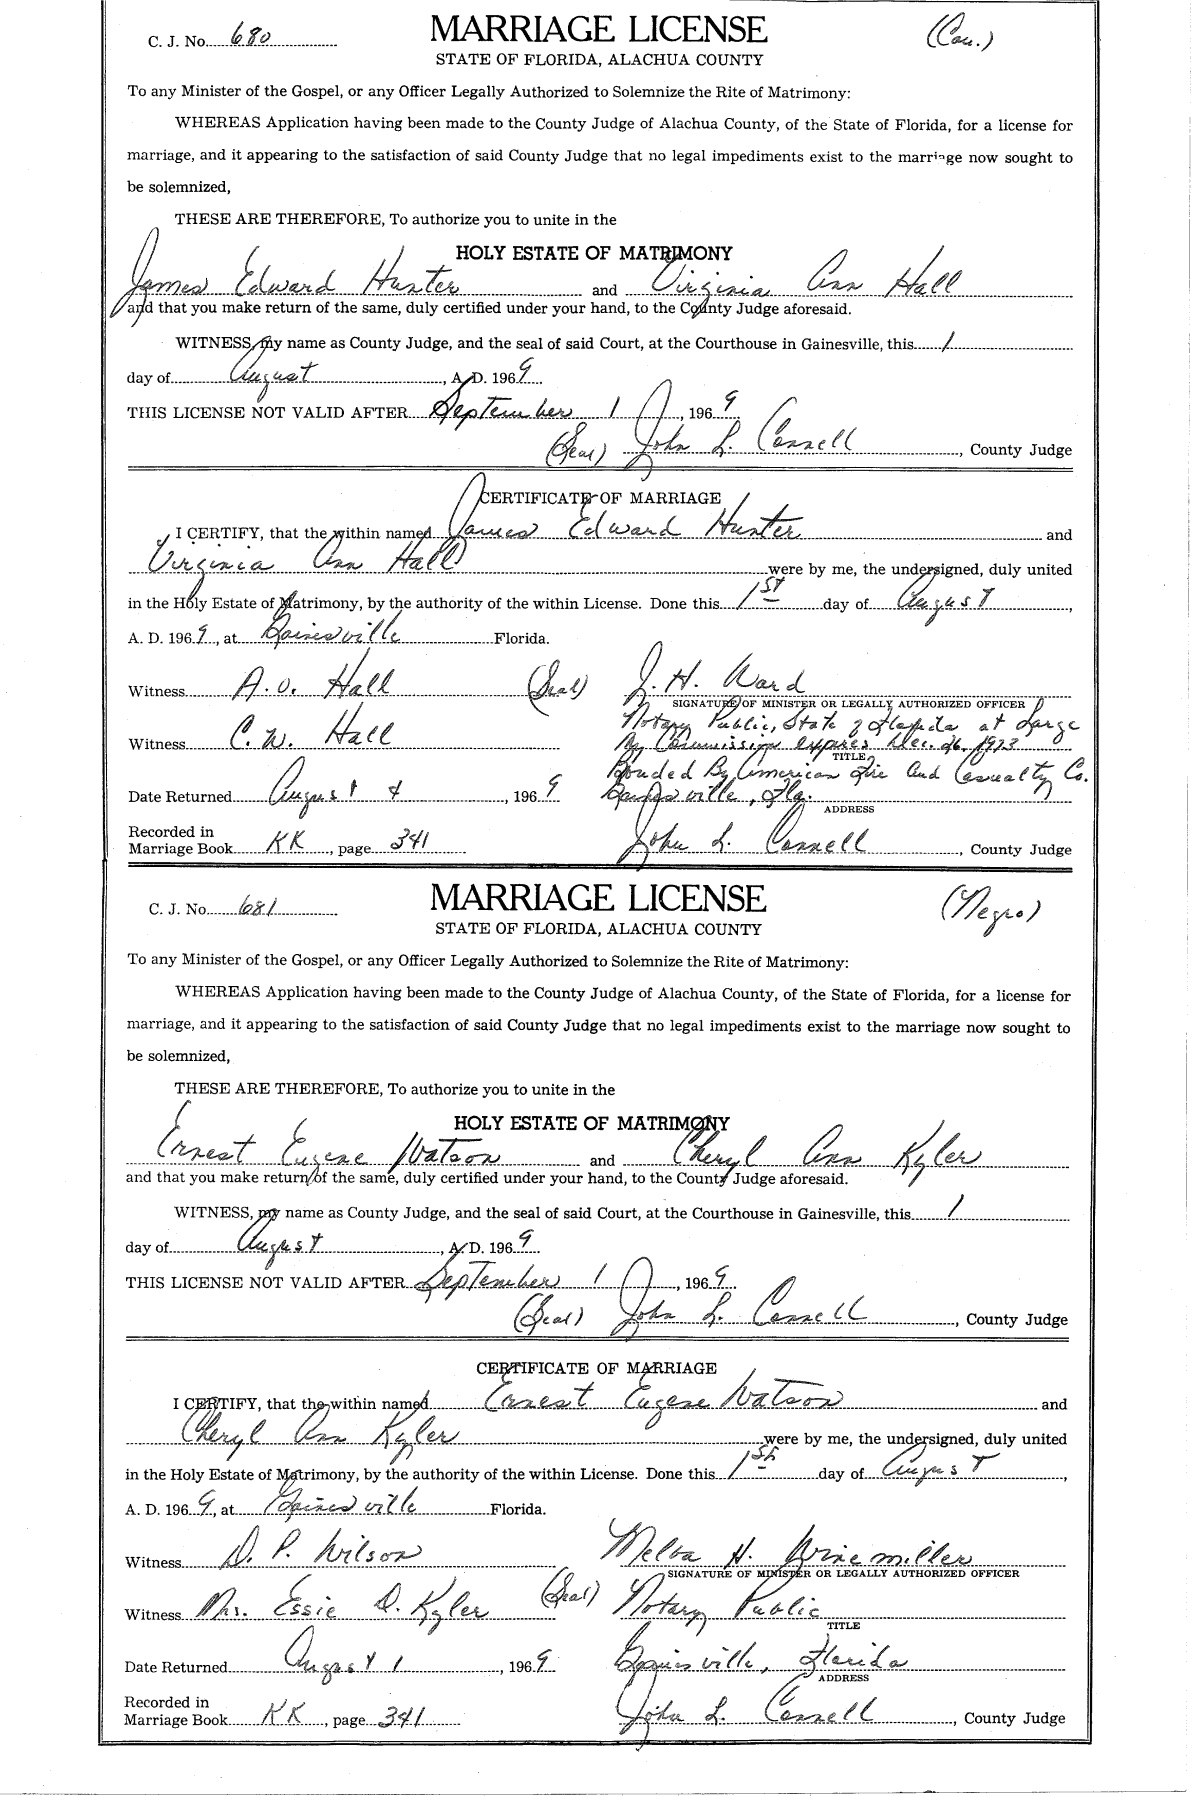 C. J. No. 680
MARRIAGE LICENSE
(Cau.)
STATE OF FLORIDA, ALACHUA COUNTY
To any Minister of the Gospel, or any Officer Legally Authorized to Solemnize the Rite of Matrimony:
WHEREAS Application having been made to the County Judge of Alachua County, of the State of Florida, for a license for
marriage, and it appearing to the satisfaction of said County Judge that no legal impediments exist to the marriage now sought to
be solemnized,
THESE ARE THEREFORE, To authorize you to unite in the
HOLY ESTATE OF MATRIMONY
James Edward Hunter and Virginia Ann Hall
and that you make return of the same, duly certified under your hand, to the County Judge aforesaid.
WITNESS, my name as County Judge, and the seal of said Court, at the Courthouse in Gainesville, this 1
day of August, A. D. 1969
THIS LICENSE NOT VALID AFTER September 1, 1969
(Seal) John L. Connell, County Judge
CERTIFICATE OF MARRIAGE
I CERTIFY, that the within named James Edward Hunter and
Virginia Ann Hall were by me, the undersigned, duly united
in the Holy Estate of Matrimony, by the authority of the within License. Done this 1st day of August,
A. D. 1969, at Gainesville Florida.
Witness A. O. Hall (Seal) J. H. Ward
SIGNATURE OF MINISTER OR LEGALLY AUTHORIZED OFFICER
Notary Public, State of Florida at Large
Witness C. W. Hall My Commission expires Dec. 26, 1973
TITLE
Bonded By American Fire and Casualty Co.
Date Returned August 4, 1969 Gainesville, Fla.
ADDRESS
Recorded in
Marriage Book KK, page 341 John L. Connell, County Judge
C. J. No. 681
MARRIAGE LICENSE
(Negro)
STATE OF FLORIDA, ALACHUA COUNTY
To any Minister of the Gospel, or any Officer Legally Authorized to Solemnize the Rite of Matrimony:
WHEREAS Application having been made to the County Judge of Alachua County, of the State of Florida, for a license for
marriage, and it appearing to the satisfaction of said County Judge that no legal impediments exist to the marriage now sought to
be solemnized,
THESE ARE THEREFORE, To authorize you to unite in the
HOLY ESTATE OF MATRIMONY
Ernest Eugene Watson and Cheryl Ann Kyler
and that you make return of the same, duly certified under your hand, to the County Judge aforesaid.
WITNESS, my name as County Judge, and the seal of said Court, at the Courthouse in Gainesville, this 1
day of August, A. D. 1969
THIS LICENSE NOT VALID AFTER September 1, 1969
(Seal) John L. Connell, County Judge
CERTIFICATE OF MARRIAGE
I CERTIFY, that the within named Ernest Eugene Watson and
Cheryl Ann Kyler were by me, the undersigned, duly united
in the Holy Estate of Matrimony, by the authority of the within License. Done this 1st day of August,
A. D. 1969, at Gainesville Florida.
Witness D. P. Wilson Melba H. Winemiller
SIGNATURE OF MINISTER OR LEGALLY AUTHORIZED OFFICER
Witness Mrs. Essie D. Kyler (Seal) Notary Public
TITLE
Date Returned August 1, 1969 Gainesville, Florida
ADDRESS
Recorded in
Marriage Book KK, page 341 John L. Connell, County Judge